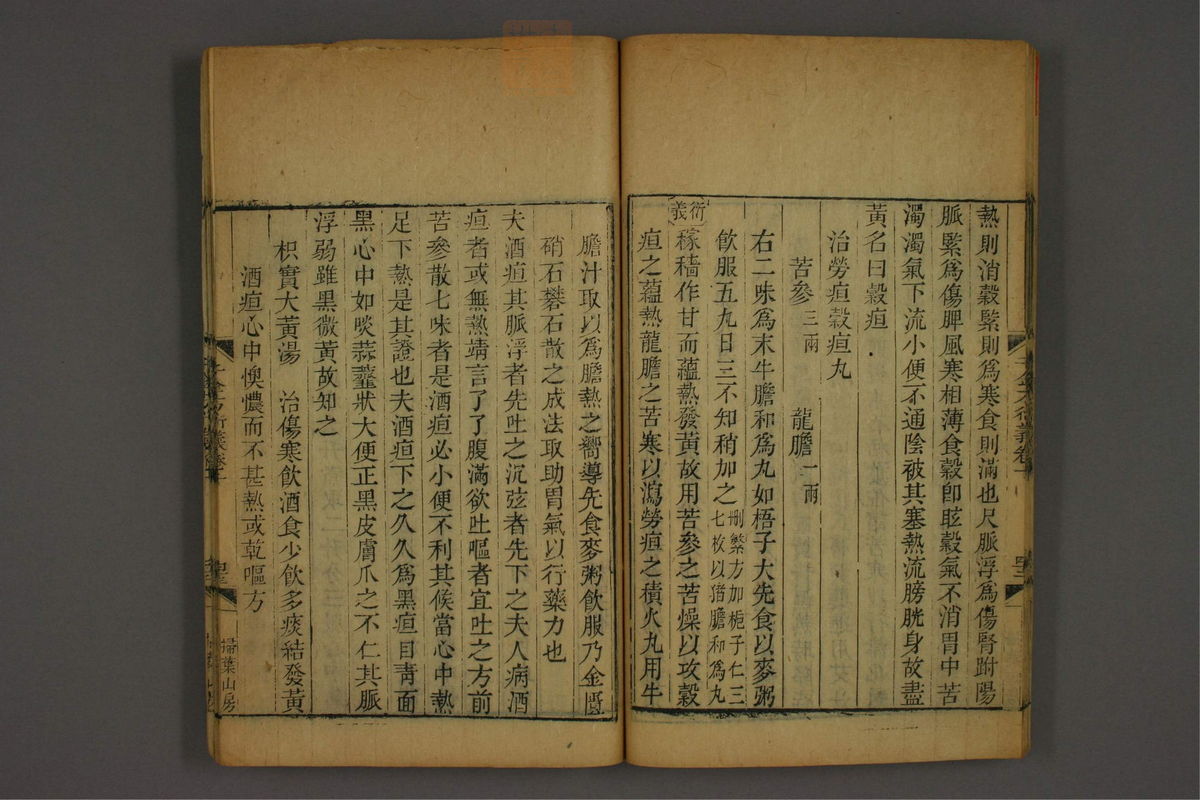 熱則消穀緊則爲寒食則滿也尺脈浮爲傷腎趺陽
脈緊爲傷脾風寒相薄食穀卽眩穀氣不消胃中苦
濁濁氣下流小便不通陰被其塞熱流膀胱身故盡
黃名曰穀疸
治勞疸穀疸丸
苦參三兩 龍膽一兩
右二味爲末牛膽和爲丸如梧子大先食以麥粥
飲服五丸日三不知稍加之刪繁方加梔子仁三七枚以猪膽和爲丸
衍義稼穡作甘而蘊熱發黃故用苦參之苦燥以攻穀
疸之蘊熱龍膽之苦寒以瀉勞疸之積火丸用牛
膽汁取以爲膽熱之嚮導先食麥粥飲服乃金匱
硝石礬石散之成法取助胃氣以行藥力也
夫酒疸其脈浮者先吐之沉弦者先下之夫人病酒
疸者或無熱靖言了了腹滿欲吐嘔者宜吐之方前
苦參散七味者是酒疸必小便不利其候當心中熱
足下熱是其證也夫酒疸下之久久爲黑疸目靑面
黑心中如啖蒜虀狀大便正黑皮膚爪之不仁其脈
浮弱雖黑微黃故知之
枳實大黃湯 治傷寒飲酒食少飲多痰結發黃
酒疸心中懊憹而不甚熱或乾嘔方
掃葉山房